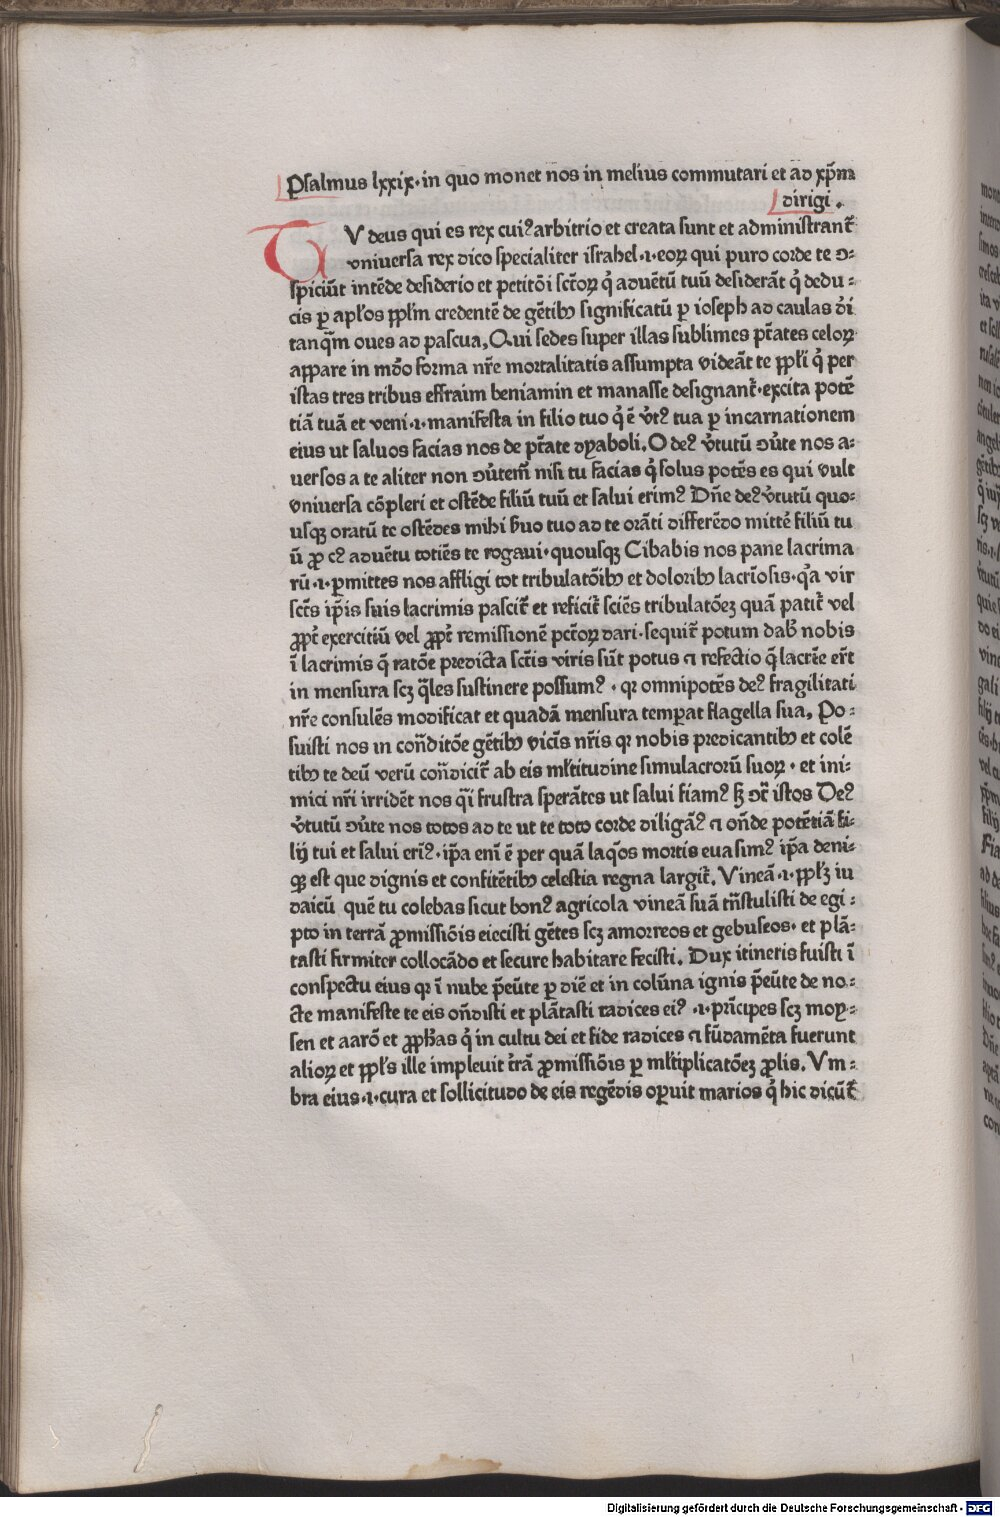 Psalmus lxxix·in quo monet nos in melius commutari et ad xp̄m
dirigi .
TV deus qui es rex cuiꝰ arbitrio et creata sunt et administranṫ
vniuersa rex dico specialiter israhel·i·eoꝝ qui puro corde te ↄ-
spiciūt intēde desiderio et petitōi sctōꝝ q̇ aduētū tuū desiderāt q̇ dedu-
cis ꝑ apl'os ppl'm credentē de gētibꝫ significatū ꝑ ioseph ad caulas d̄i
tanq̄m oues ad pascua, Qui sedes super illas sublimes ptātes celoꝝ
appare in mūdo forma nr̄e mortalitatis assumpta videāt te ppl'i q̇ per
istas tres tribus effraim beniamin et manasse designanṫ·excita potē
tiā tuā et veni·i·manifesta in filio tuo q̇ ē v̇tꝰ tua ꝑ incarnationem
eius ut saluos facias nos de ptāte dyaboli, O deꝰ v̇tutū ↄūte nos a-
uersos a te aliter non ↄūtem̄ nisi tu facias q̇ solus potēs es qui vult
vniuersa cōpleri et ostēde filiū tuū et salui erimꝰ Dn̄e deꝰ v̇tutū quo-
usqꝫ oratū te ostēdes mihi s̄uo tuo ad te orāti differēdo mittē filiū tu
ū ꝓ cꝰ aduētu totiēs te rogaui·quousqꝫ Cibabis nos pane lacrima
rū·i·ꝑmittes nos affligi tot tribulatōibꝫ et doloribꝫ lacrīosis·q̄a vir
sctūs ip̄is suis lacrimis pasciṫ et reficiṫ sciēs tribulatōeꝫ quā patiṫ vel
ꝓpt̄ exercitiū vel ꝓpt̄ remissionē pctōꝝ dari·sequiṫ potum dab̄ nobis
ī lacrimis q̄ ratōe predicta sctīs viris sūt potus ⁊ refectio q̄ lacrīe er̄t
in mensura scꝫ q̄les sustinere possumꝰ · qꝛ omnipotēs deꝰ fragilitati
nr̄e consulēs modificat et quadā mensura temꝑat flagella sua, Po-
suisti nos in cōn̄ditōe gētibꝫ vicīs nr̄is qꝛ nobis predicantibꝫ et colē
tibꝫ te deū verū cōn̄diciṫ ab eis ml'titudine simulacrorū suoꝝ · et ini-
mici nr̄i irridēt nos q̄i frustra sperātes ut salui fiamꝰ sꝫ ↄ̄t istos Deꝰ
v̇tutū ↄūte nos totos ad te ut te toto corde diligāꝰ ⁊ on̄de potētiā fi-
lij tui et salui erīꝰ·ip̄a enī ē per quā laq̄os mortis euasimꝰ ip̄a deni-
qꝫ est que dignis et confitētibꝫ celestia regna largiṫ, Vineā·i·ppl'ꝫ iu
daicū quē tu colebas sicut bonꝰ agricola vineā suā trān̄stulisti de egi-
pto in terrā ꝓmissiōis eiecisti gētes scꝫ amorreos et gebuseos· et plā-
tasti firmiter collocādo et secure habitare fecisti, Dux itineris fuisti ī
conspectu eius qꝛ ī nube p̄eūte ꝑ diē et in colūna ignis p̄eūte de no-
cte manifeste te eis on̄disti et plātasti radices eiꝰ ·i·prīcipes scꝫ moy-
sen et aarō et ꝓph̄as q̇ in cultu dei et fide radices ⁊ fūdamēta fuerunt
alioꝝ et ppl's ille impleuit t̄rā ꝓmissiōis ꝑ ml'tiplicatōeꝫ ꝓlis, Vm-
bra eius·i·cura et sollicitudo de eis regēdis oꝑuit marios q̇ hic dicūṫ
Digitalisierung gefördert durch die Deutsche Forschungsgemeinschaft - DFG